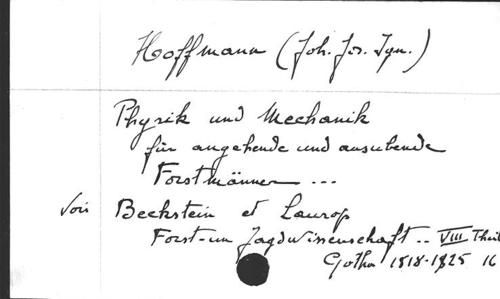 Hoffmann (Joh. Jos. Ign.)
Physik und Mechanik
für angehende und ausubende
Forstmänner ...
Vois Beckstein et Laurop
Forst-un Jagdwissenschaft .. VIII Theil
Gotha 1818-1825 16